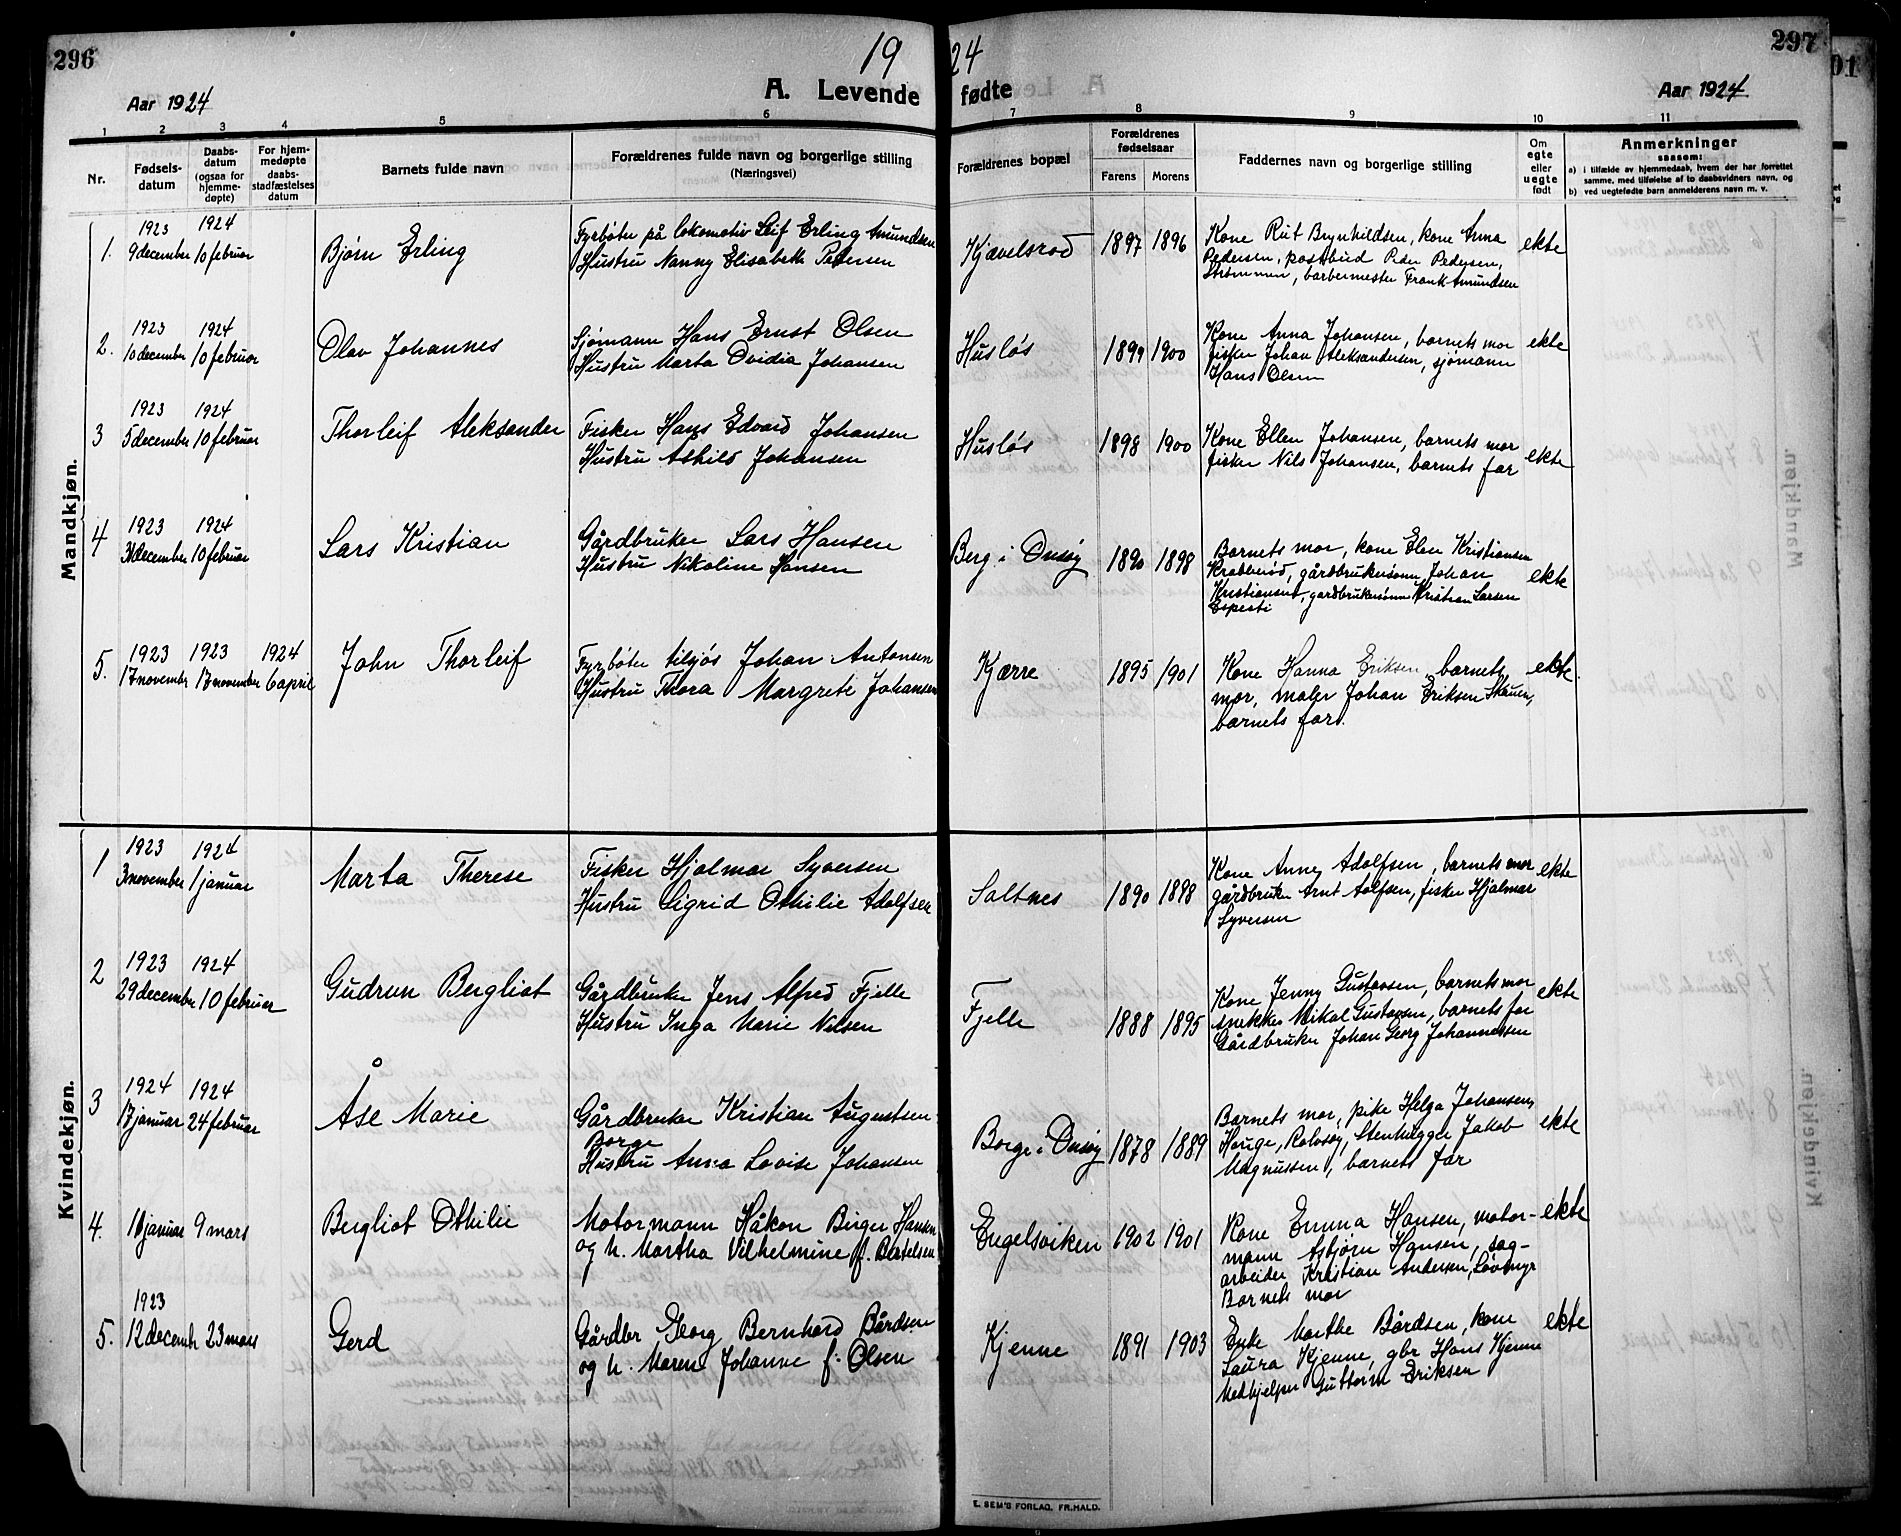 296
19 24
297
Aar 1924
A. Levende fødte
Aar 1924
1 2 3 4 5 6 7 8 9 10 11
Nr.
Fødsels-
datum
Daabs-
datum
(ogsaa for
hjemme-
døpte)
For hjem-
medøpte
daabs-
stadfæstelses
datum
Barnets fulde navn
Forældrenes fulde navn og borgerlige stilling
(Næringsvei)
Forældrenes bopæl
Forældrenes
fødselsaar
Farens Morens
Faddernes navn og borgerlige stilling
Om
egte
eller
uegte
født
Anmerkninger
saasom:
a) i tilfælde av hjemmedaab, hvem der har forrettet
samme, med tilføielse af to daabsvidners navn, og
b) ved uegtefødte barn anmelderens navn m. v.
Mandkjøn.
1.
1923
9 december
1924
10 februar
Bjørn Erling
Fyrbøter på lokomotiv Leif Erling Amundsen
Hustru Nanny Elisabeth Pedersen
Kjævelsrød
1897 1896
Kone Rut Brynhildsen, kone Anna
Pedersen, postbud Peder Pedersen,
Strømmen, barbermester Frank Amundsen
ekte
2.
1923
10 december
1924
10 februar
Olav Johannes
Sjømann Hans Ernst Olsen
Hustru Marta Ovidia Johansen
Husløs
1899 1900
Kone Anna Johansen, barnets mor
fisker Johan Aleksandersen, sjømann
Hans Olsen
ekte
3
1923
5 december
1924
10 februar
Thorleif Aleksander
Fisker Hans Edvard Johansen
Hustru Ashild Johansen
Husløs
1898 1900
Kone Ellen Johansen, barnets mor
fisker Nils Johansen, barnets far
ekte
4
1923
31 december
1924
10 februar
Lars Kristian
Gårdbruker Lars Hansen
Hustru Nikoline Hansen
Berg i Onsøy
1890 1898
Barnets mor, kone Elen Kristiansen
Krabberød, gårdbrukersønn Johan
Kristiansen, gardbrukersønn Kristian Larsen
ekte
5.
1923
17 november
1923
17 november
1924
6 april
John Thorleif
Fyrbøter tilsjøs Johan Antonsen
Hustru Thora Margrete Johansen
Kjærre
1895 1901
Kone Hanna Eriksen, barnets
mor, maler Johan Eriksen Skauen,
barnets far.
ekte.
Kvindekjøn.
1
1923
3 november
1924
1 januar
Marta Therese
Fisker Hjalmar Syversen
Hustru Sigrid Othilie Adolfsen
Saltnes
1890 1888
Kone Anne Adolfsen, barnets mor
gårdbruker Arnt Aolfsen, fisker Hjalmar
Syversen
ekte
2
1923
29 december
1924
10 februar
Gudrun Bergliot
Gårdbruker Jens Alfred Fjelle
Hustru Inga Marie Nilsen
Fjelle
1888 1895
Kone Jenny Gustavsen, barnets mor
snekker Mikal Gustavsen, barnets far
Gårdbruker Johan Georg Johannessen
ekte
3
1924
17 januar
1924
24 februar
Åse Marie
Gårdbruker Kristian Augustsen
Borge
Hustru Anna Lovise Johansen
Borge i Onsøy
1878 1889
Barnets mor, pike Helga Johansen,
Hauge, Rolvsøy, Stenhugger Jakob
Magnussen, barnets far
ekte
4.
16 januar
9 mars
Bergliot Othilie
Motormann Håkon Birger Hansen
og h. Martha Vilhelmine f. Bertelsen
Engelsviken
1902 1901
Kone Emma Hansen, motor-
mann Asbjørn Hansen, sag-
arbeider Kristian Andersen, Løvmyr
Barnets mor
ekte
5.
1923
12 decembr
23 mars
Gerd
Gårdbr Georg Bernhard Bårdsen
og h. Maren Johanne f. Olsen
Kjenne
1891 1903
Enke Marthe Bårdsen, kone
Laura Kjenne, gbr Hans Kjenne
Medhjelper Guttorm Eriksen
ekte
E. SEM'S FORLAG, FR.HALD.